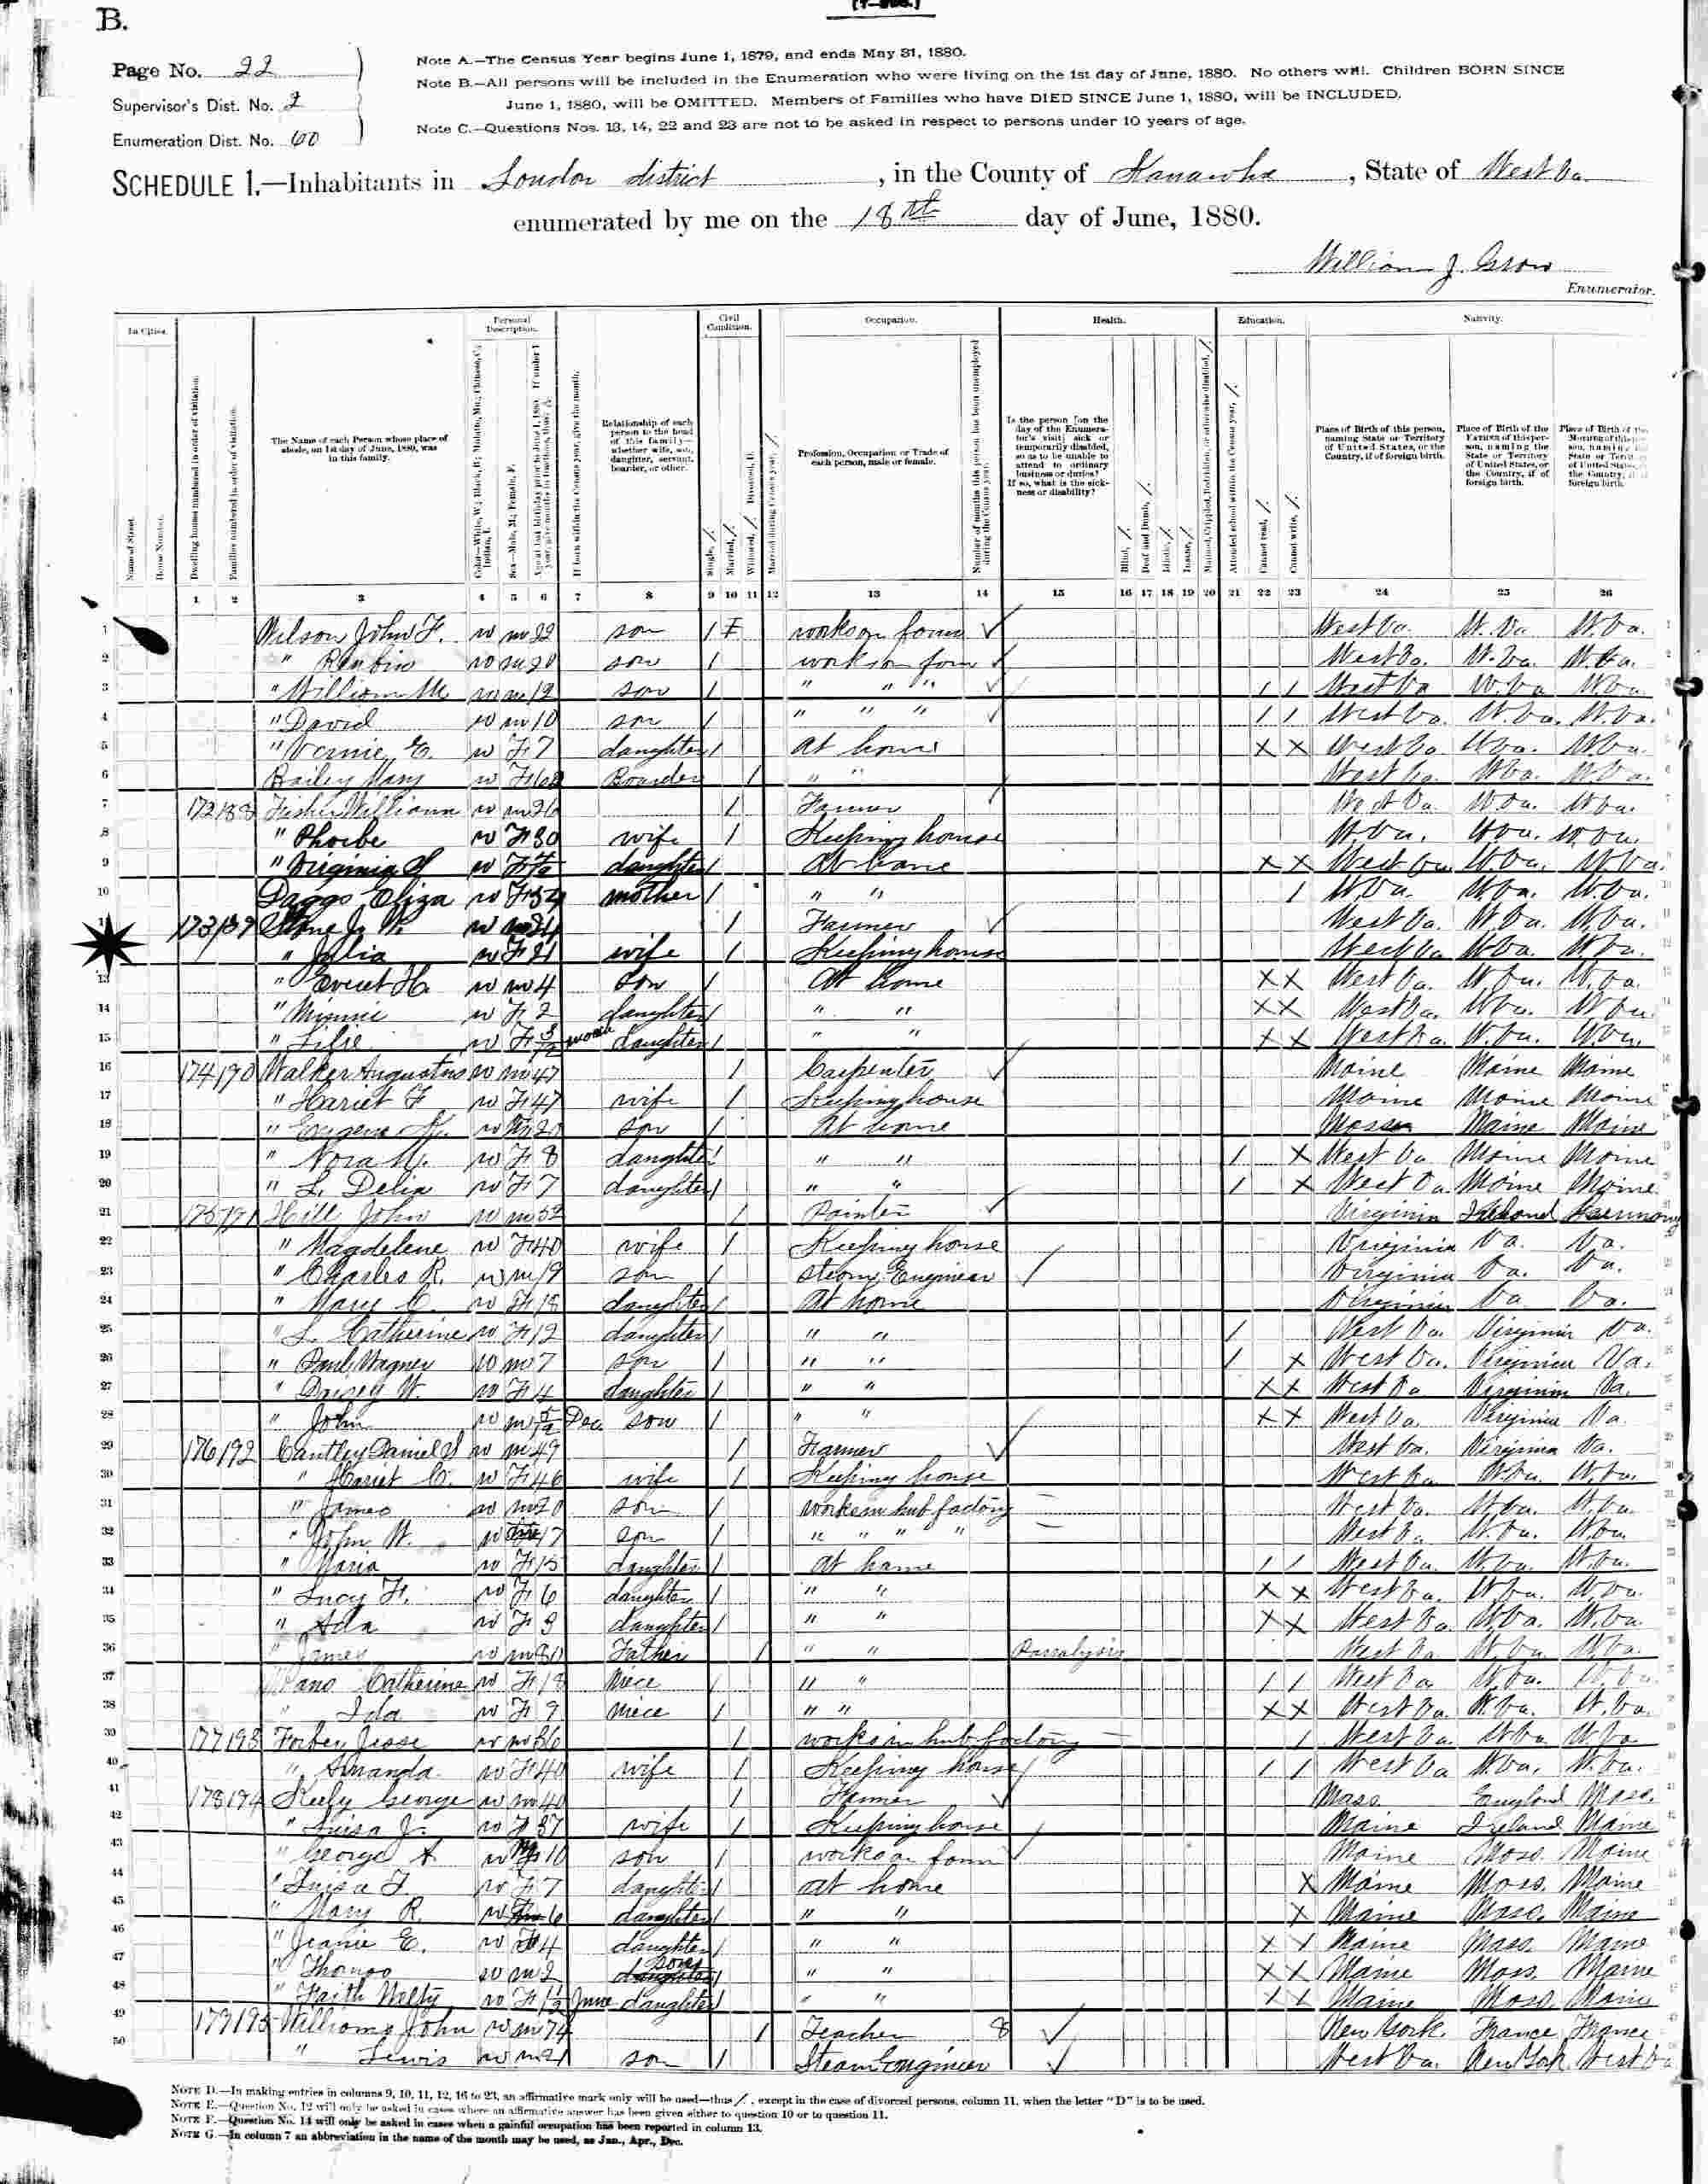 B.
Page No. 22
Supervisor's Dist. No. 2
Enumeration Dist. No. 60
Note A.—The Census Year begins June 1, 1879, and ends May 31, 1880.
Note B.—All persons will be included in the Enumeration who were living on the 1st day of June, 1880. No others will. Children BORN SINCE
June 1, 1880, will be OMITTED. Members of Families who have DIED SINCE June 1, 1880, will be INCLUDED.
Note C.—Questions Nos. 13, 14, 22 and 23 are not to be asked in respect to persons under 10 years of age.
SCHEDULE 1.—Inhabitants in London district, in the County of Kanawha, State of West Va.
enumerated by me on the 18th day of June, 1880.
William J. Grow
Enumerator.
In Cities. Personal Description. Civil Condition. Occupation. Health. Education. Nativity.
Name of Street.
House Number.
Dwelling houses numbered in order of visitation.
Families numbered in order of visitation.
The Name of each Person whose place of abode, on 1st day of June, 1880, was in this family.
Color—White, W.; Black, B.; Mulatto, Mu.; Chinese, C.; Indian, I.
Sex—Male, M.; Female, F.
If born within the Census year, give the month.
Relationship of each person to the head of this family—whether wife, son, daughter, servant, boarder, or other.
Single, /.
Married, /.
Widowed, /. Divorced, D.
Married during Census year, /.
Profession, Occupation or Trade of each person, male or female.
Number of months this person has been unemployed during the Census year.
Is the person [on the day of the Enumerator's visit] sick or temporarily disabled, so as to be unable to attend to ordinary business or duties? If so, what is the sickness or disability?
Blind, /.
Deaf and Dumb, /.
Idiotic, /.
Insane, /.
Maimed, Crippled, Bedridden, or otherwise disabled, /.
Attended school within the Census year, /.
Cannot read, /.
Cannot write, /.
Place of Birth of this person, naming State or Territory of United States, or the Country, if of foreign birth.
Place of Birth of the FATHER of this person, naming the State or Territory of United States, or the Country, if of foreign birth.
Place of Birth of the
1 2 3 4 5 6 7 8 9 10 11 12 13 14 15 16 17 18 19 20 21 22 23 24 25 26
1 Wilson John F. w m 22 son / works on farm West Va. W. Va W. Va.
2 " w m 20 son / works on farm West Va. W. Va. W. Va.
3 " William M w m 12 son / " " " / / West Va W. Va W. Va
4 " David w m 10 son / " " " / / West Va. W. Va. W. Va.
5 " E. w F 7 daughter / At home X X West Va. W Va. W Va.
6 Bailey Mary w F Boarder / " " West Va. W Va. W. Va.
7 172 188 Fisher William w m 26 / Farmer West Va. W Va. W Va.
8 " Phoebe w F 30 wife / Keeping house W. Va. W. Va. W. Va.
9 " Virginia w F daughter / At home X X West Va W Va. W. Va.
10 Eliza w F mother / " " / W. Va. W. Va. W. Va.
11 173 189 Stone J. W. w m / Farmer West Va. W. Va. W. Va.
12 " Julia w F 21 wife / Keeping house West Va W Va. W. Va.
13 " Everet H. w m 4 son / At home X X West Va. W. Va. W. Va.
14 " Minnie w F 2 daughter / " " X X West Va. W Va. W Va.
15 " Lilie w F daughter / " " X X West Va. W. Va. W. Va.
16 174 190 Walker Augustus w m 47 / Carpenter Maine Maine Maine
17 " Hariet F w F 47 wife / Keeping house Maine Maine Maine
18 " Eugene w m 20 son / At home Mass Maine Maine
19 " Nora M. w F 8 daughter / " " / X West Va Maine Maine
20 " L. Delia w F 7 daughter / " " / X West Va. Maine Maine
21 175 191 Hill John w m 52 / Painter Virginia Ireland Germany
22 " Magdelene w F 40 wife / Keeping house Virginia Va. Va.
23 " Charles R. w m 19 son / Steam Engineer Virginia Va. Va.
24 " Mary C. w F 18 daughter / At home Virginia Va Va.
25 " L. Catherine w F 12 daughter / " " / West Va. Virginia Va.
26 " Paul Wagner w m 7 son / " " / X West Va. Virginia Va.
27 " W. w F 4 daughter / " " X X West Va Virginia Va.
28 " John w m Dec. son / " " X X West Va. Virginia Va.
29 176 192 Cantley Daniel w m 49 / Farmer West Va. Virginia Va.
30 " Hariet C. w F 46 wife / Keeping house West Va. W Va. W. Va.
31 " James w m 20 son / works in hub factory West Va. W. Va. W. Va.
32 " John W. w m 17 son / " " " " West Va. W. Va. W. Va.
33 " Maria w F 15 daughter / At home / / West Va. W. Va. W. Va.
34 " Lucy F. w F 6 daughter / " " X X West Va. W Va. W. Va.
35 " Ada w F 3 daughter / " " X X West Va. W. Va. W. Va.
36 " James w m 80 Father / " " Paralysis West Va. W. Va W. Va.
37 Catherine w F 18 Niece / " " / / West Va W. Va.
38 " Ida w F 9 niece / " " X X West Va. W. Va. W. Va.
39 177 193 Jesse w m 36 / works in hub factory / West Va. W Va W. Va
40 " Amanda w F 40 wife / Keeping house / / West Va W Va. W. Va.
41 178 194 Keely George w m 40 / Farmer Mass. England Mass.
42 " Luisa J. w F 37 wife / Keeping house Maine Ireland Maine
43 " George A. w m 10 son / works on farm Maine Mass. Maine
44 " Luisa F. w F 7 daughter / at home X Maine Mass. Maine
45 " Mary R. w F 6 daughter / " " X Maine Mass. Maine
46 " Jeanie E. w F 4 daughter / " " X X Maine Mass. Maine
47 " Thomas w m 2 son / " " X X Maine Mass. Maine
48 " Faith w F June daughter / " " X X Maine Mass. Maine
49 179 195 Williams John w m 74 / Teacher 8 New York France France
50 " Lewis w m 21 son / Steam Engineer West Va. New York West Va
NOTE D.—In making entries in columns 9, 10, 11, 12, 16 to 23, an affirmative mark only will be used—thus /, except in the case of divorced persons, column 11, when the letter "D" is to be used.
NOTE E.—Question No. 12 will only be asked in cases where an affirmative answer has been given either to question 10 or to question 11.
NOTE F.—Question No. 14 will only be asked in cases when a gainful occupation has been reported in column 13.
NOTE G.—In column 7 an abbreviation in the name of the month may be used, as Jan., Apr., Dec.